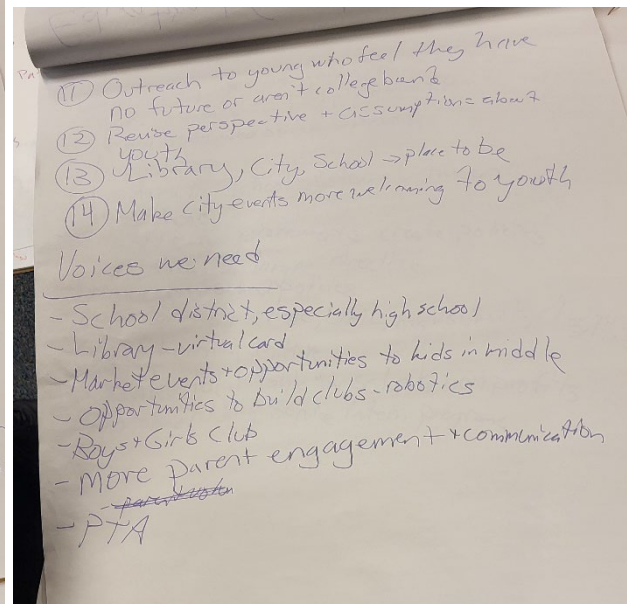 (11) Outreach to young who feel they have
no future or aren't college bound
(12) Revise perspective + assumptions about
youth
(13) Library, City, School → place to be
(14) Make city events more welcoming to youth
Voices we need
- School district, especially high school
- Library - virtual card
- Market events + opportunities to kids in middle
- Opportunities to build clubs - robotics
- Boys + Girls Club
- More parent engagement + communication
- PTA